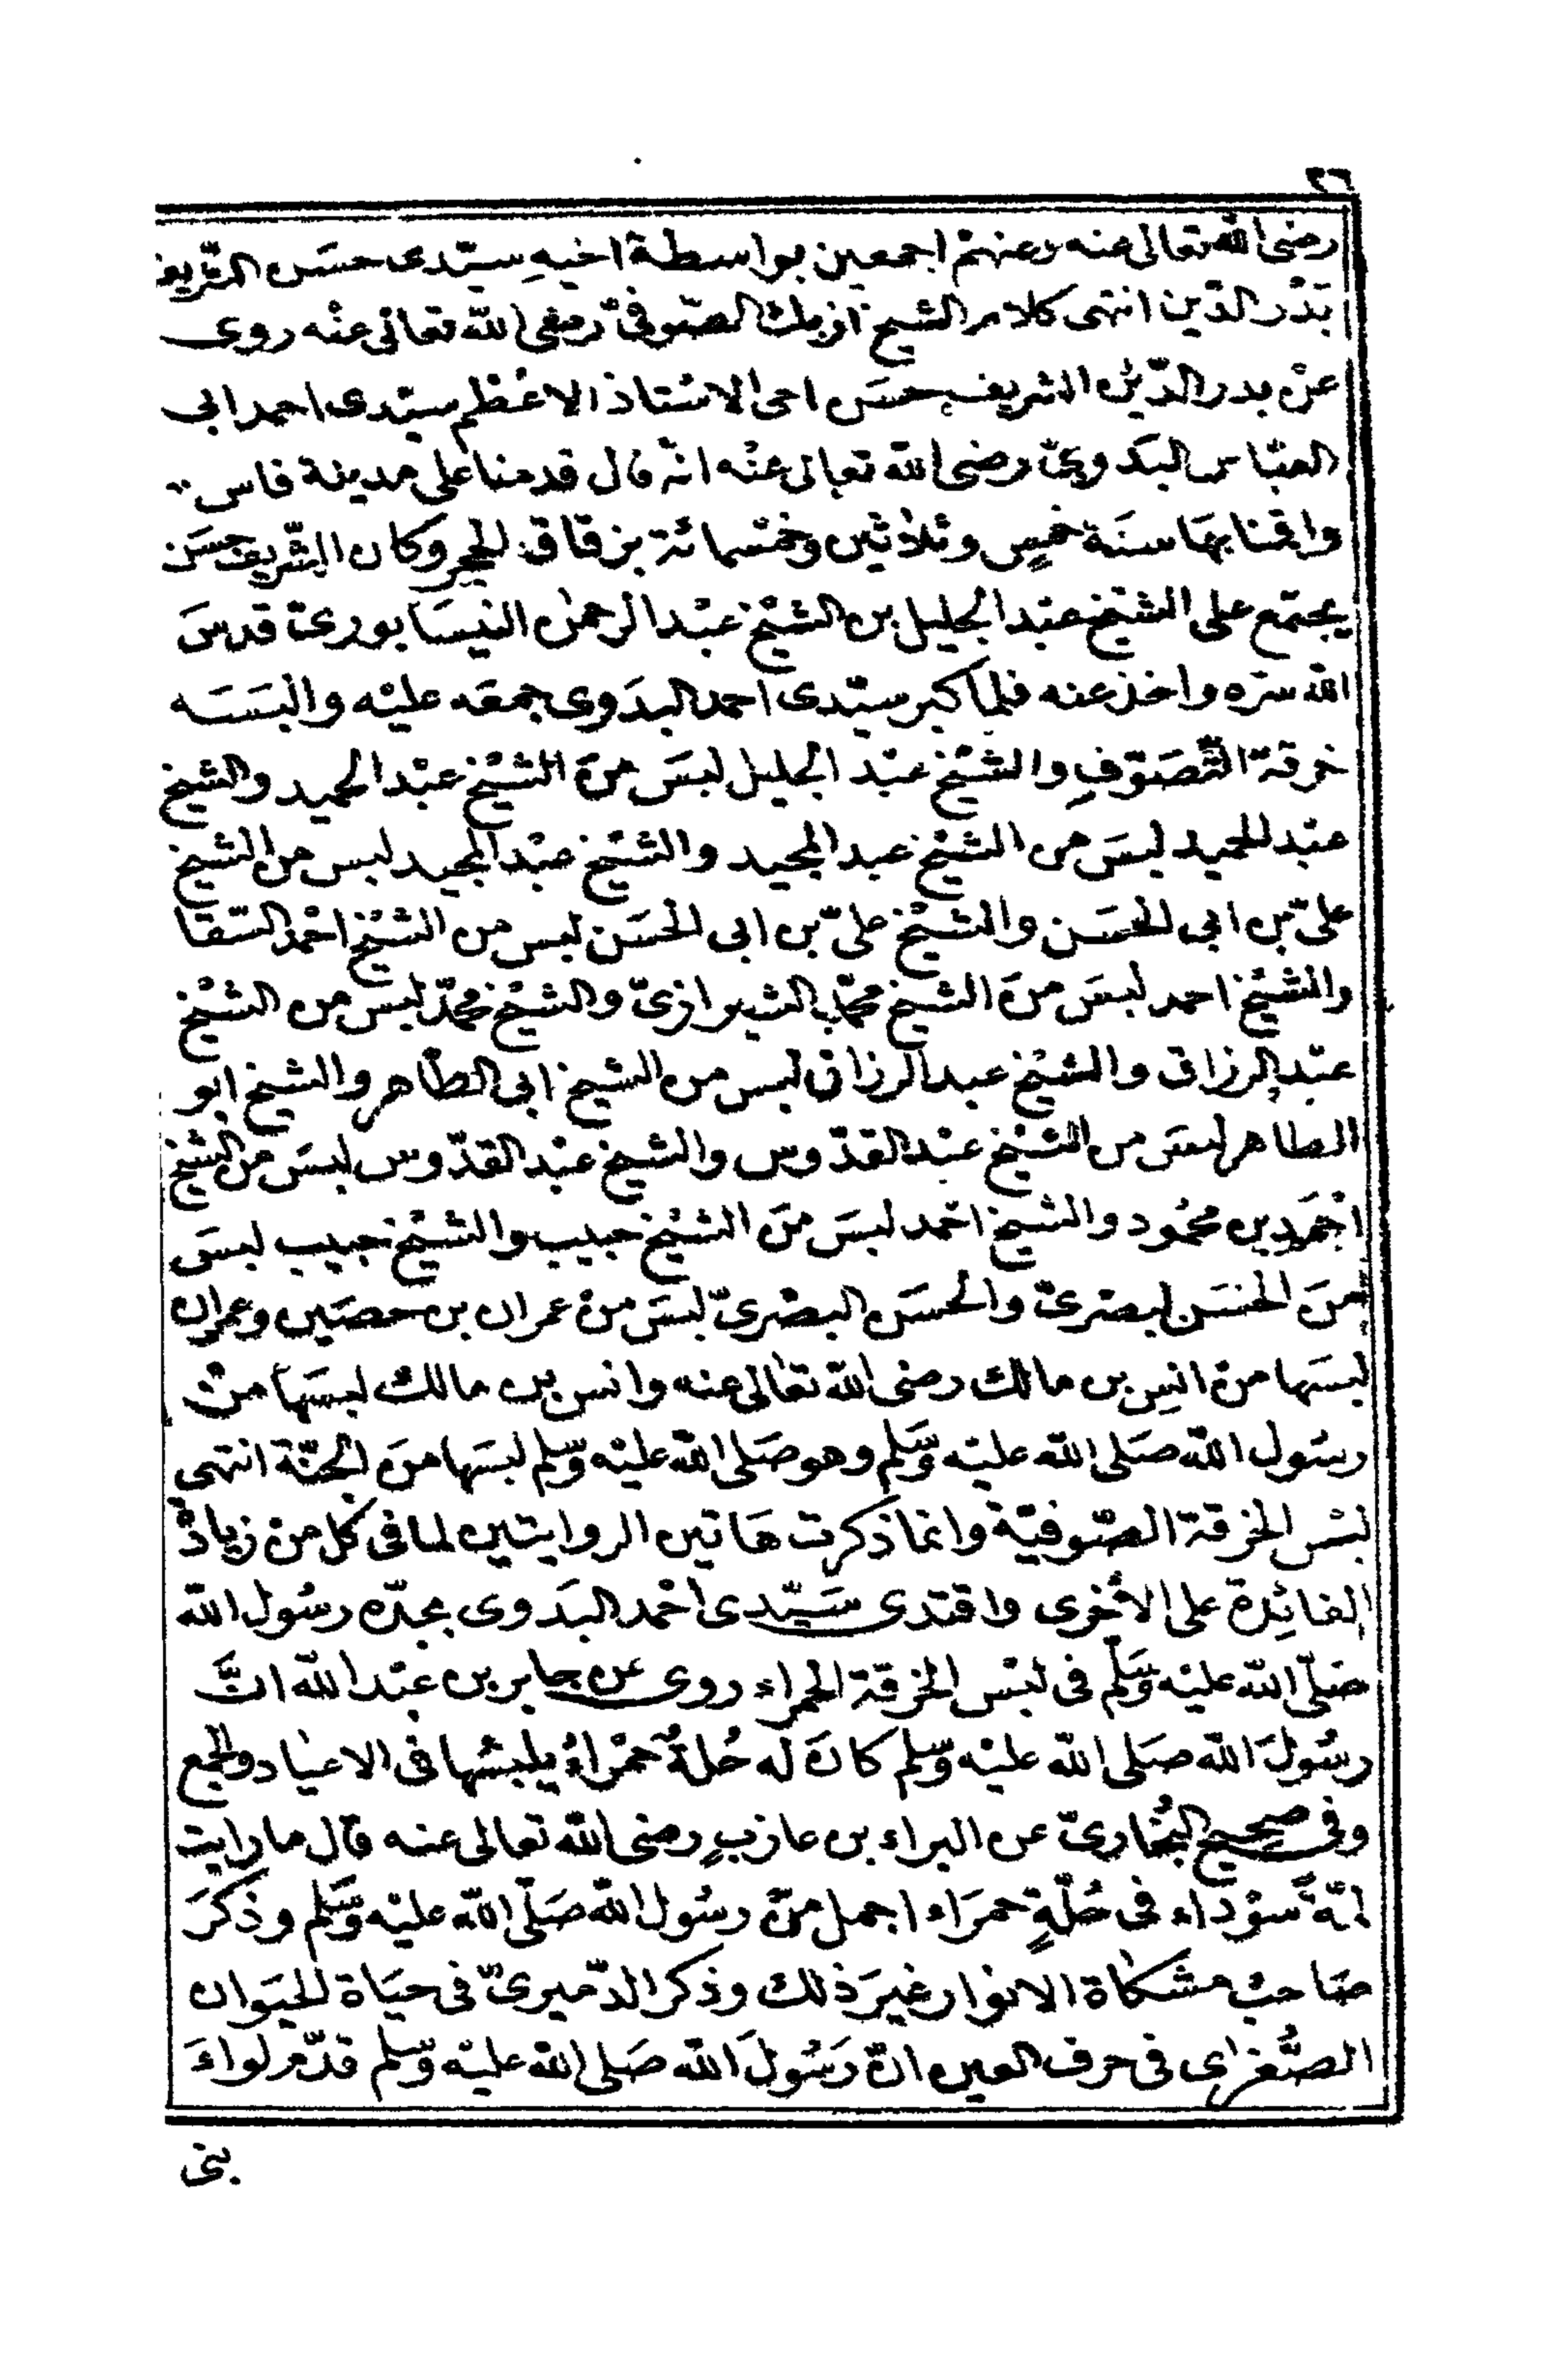 ٢٦
رضى الله تعالى عنه وعنهم اجمعين بواسطة اخيهِ سيّدى حسَن الشّريف
بَدْر الدّين انتهى كلام الشيخ ازبك الصّوفىّ رضى الله تعالى عنْه روى
عنْ بدر الدّين الشريف حسَن اخى الاسْتاذ الاعْظم سيّدى احمد ابى
العبّاس البَدوىّ رضى الله تعالى عنْه انّه قال قدمنا على مدينة فاس
واقمْنا بهَا سنَة خمسٍ وثلاثين وخمْسمائة بزقاق الحجر وكان الشّريف حسَن
يجتمع على الشيْخ عبْد الجليل بن الشيْخ عبْد الرحمٰن النيسَابورىّ قدسَ
الله سرّه واخذ عنه فلما كبر سيّدى احمد البدَوى جمعَه عليْه والبَسَه
خرقة التّصَوّفِ والشيْخ عبْد الجليل لبسَ منَ الشيْخ عبْد الحميد والشيخ
عبْد الحميد لبسَ من الشيْخ عبد المجيد والشيْخ عبْد المجيد لبس من الشيخ
علىّ بن ابى الحسَن والشيْخ علىّ بن ابى الحسَن لبس من الشيْخ احْمد السّقا
والشيْخ احمد لبسَ منَ الشيخ محمّد الشيرازىّ والشيْخ محمّد لبسَ من الشيْخ
عبْد الرزاق والشيْخ عبد الرزاق لبس من الشيخ ابى الطّاهر والشيخ ابو
الطاهر لبسَ من الشيْخ عبْد القدّوس والشيخ عبْد القدّوس لبسَ من الشيخ
احْمَد بن محمُود والشيخ احْمد لبسَ منَ الشيْخ حبيب والشيْخ حبيب لبسَ
منَ الحسَن البصرىّ والحسَن البصْرىّ لبسَ منْ عمران بن حصَين وعمران
لبسَها منْ انسِ بن مالك رضى الله تعَالى عنه وانس بن مالك لبسَها منْ
رسُول الله صَلى الله عليْه وسَّلم وهو صَلى الله عليْه وسّلم لبسَها منَ الجنّة انتهى
لبْس الخرقة الصّوفيّة وانما ذكرت هَاتين الروايتين لما فى كل من زيادة
الفائِدة على الاخْرى واقتدى سَيّدى احْمد البَدوى بجدّه رسُول الله
صَلّى الله عليْه وسَّلم فى لبْس الخرقة الحمراء روى عن جابر بن عبْد الله انَّ
رسُولَ الله صَلى الله عليْه وسّلم كانَ له حُلةٌ حمْراءُ يلبسُها فى الاعْيَاد والجمع
وفى صحيح البُخارىّ عن البراء بن عازبٍ رضى الله تعالى عنه قال ما رايت
لمّةً سوْداء فى حُلّةٍ حمرَاء اجمل منْ رسُول اللهِ صَلّى الله عليْه وسَّلم وذكرَ
صَاحبُ مشكاة الانوار غيرَ ذلك وذكر الدّميرىّ فى حيَاة الحيَوان
الصُّغرى فى حرف العين انّ رَسُولَ الله صَلى الله عليْه وسّلم قدّم لواءَ
بنى